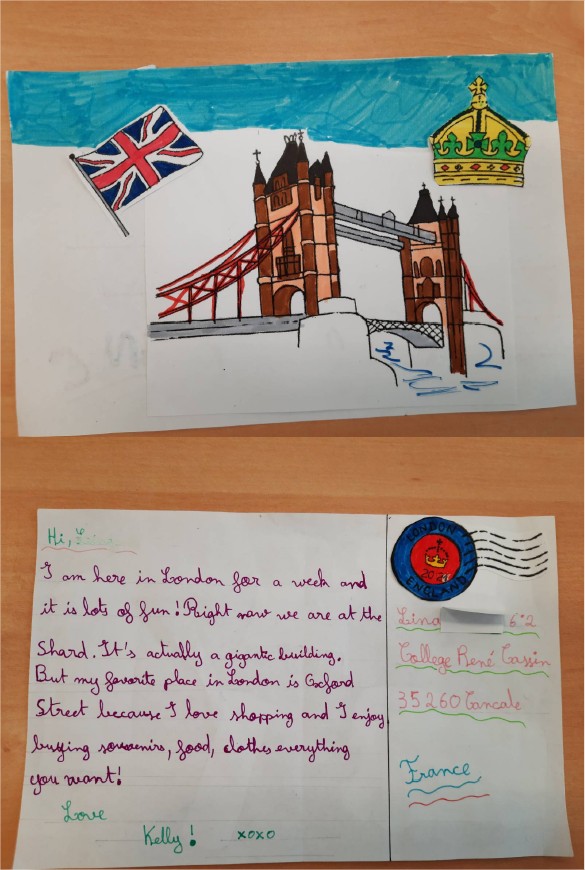 Hi,
I am here in London for a week and
it is lots of fun! Right now we are at the
Shard. It's actually a gigantic building.
But my favorite place in London is Oxford
Street because I love shopping and I enjoy
buying souvenirs, food, clothes everything
you want!
Love
Kelly! xoxo
LONDON
2024
ENGLAND
Lina 6°2
College René Cassin
35260 Cancale
France